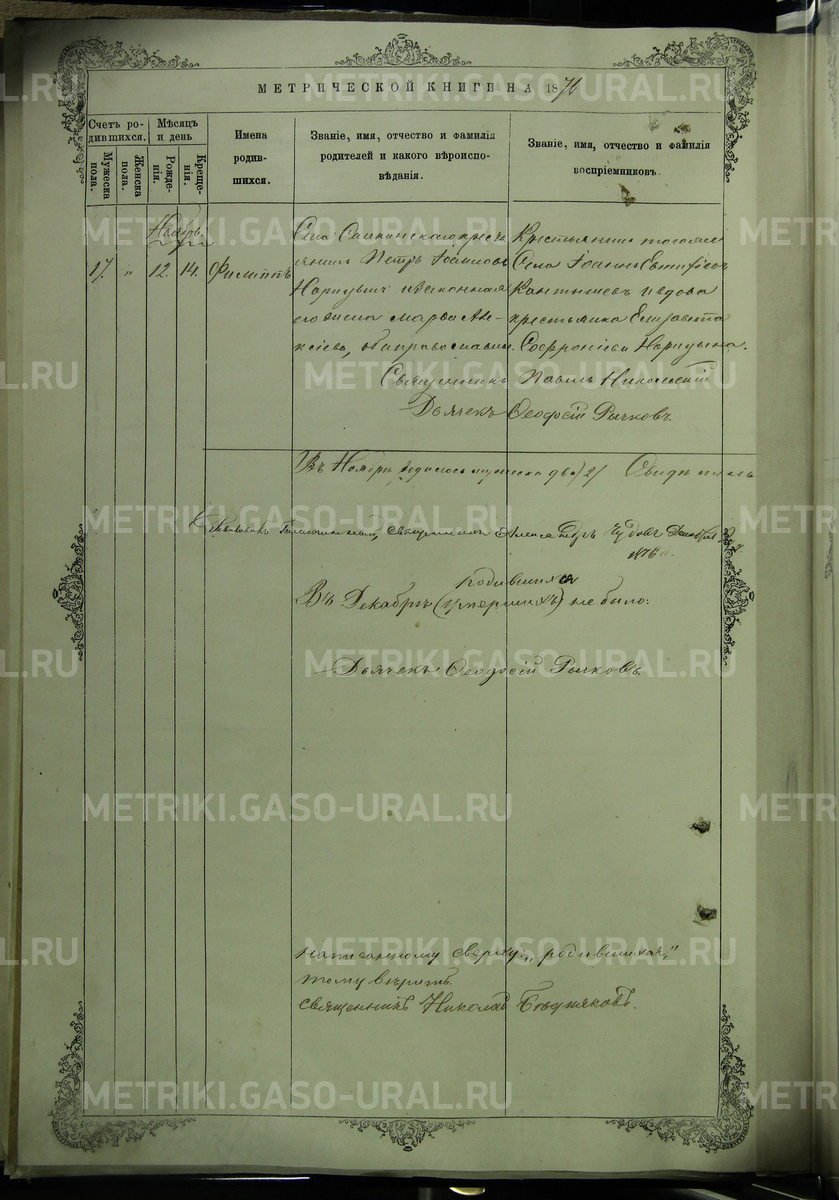 МЕТРИЧЕСКОЙ КНИГЕ НА 1876
Счетъ родившихся.
Мужеска пола.
Женска пола.
Мѣсяцъ и день
Рожденія.
Крещенія.
Имена родившихся.
Званіе, имя, отчество и фамилія
родителей и какого вѣроиспо-
вѣданія.
Званіе, имя, отчество и фамилія
воспріемниковъ.
Ноябрь.
17. " 12. 14. Филиппъ
Села
Петръ Іоанновъ
Нарицынъ и законная
его жена Марѳа Але-
ксіева, оба православн.
Крестьянинъ тогоже
Села Іоаннъ
и вдова
крестьянка Елизавета
Софроніева Нарицына.
Священникъ Павелъ Никольскій
Дьячекъ Ѳеодосій Рычковъ.
Въ Ноябрѣ родилось мужеска два /2/
Священникъ Александръ Чудовъ Декабря
1876 г.
родившихся
Въ Декабрѣ (умершихъ) не было:
Дьячекъ Ѳеодосій Рычковъ
написанному сверху: „родившихся,"
тому вѣрить.
священникъ Николай Бѣдняковъ.
METRIKI.GASO-URAL.RU